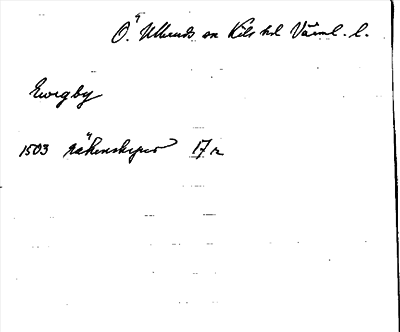 Ö. Ulleruds sn Kils hd Värml. l.
Ewigby
1503 räkenskaper 17 r